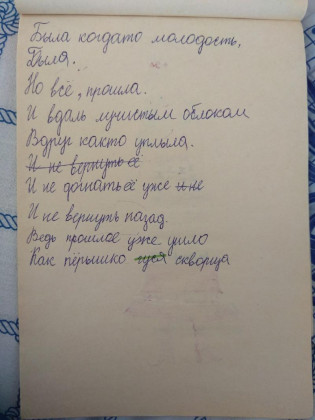 Была когдато молодость,
Была.
Но всё, прошла.
И вдаль лучистым облаком
Вдруг както уплыла.
И не вернуть её
И не догнать её уже и не
И не вернуть назад.
Ведь прошлое уже ушло
Как пёрышко гуся скворца